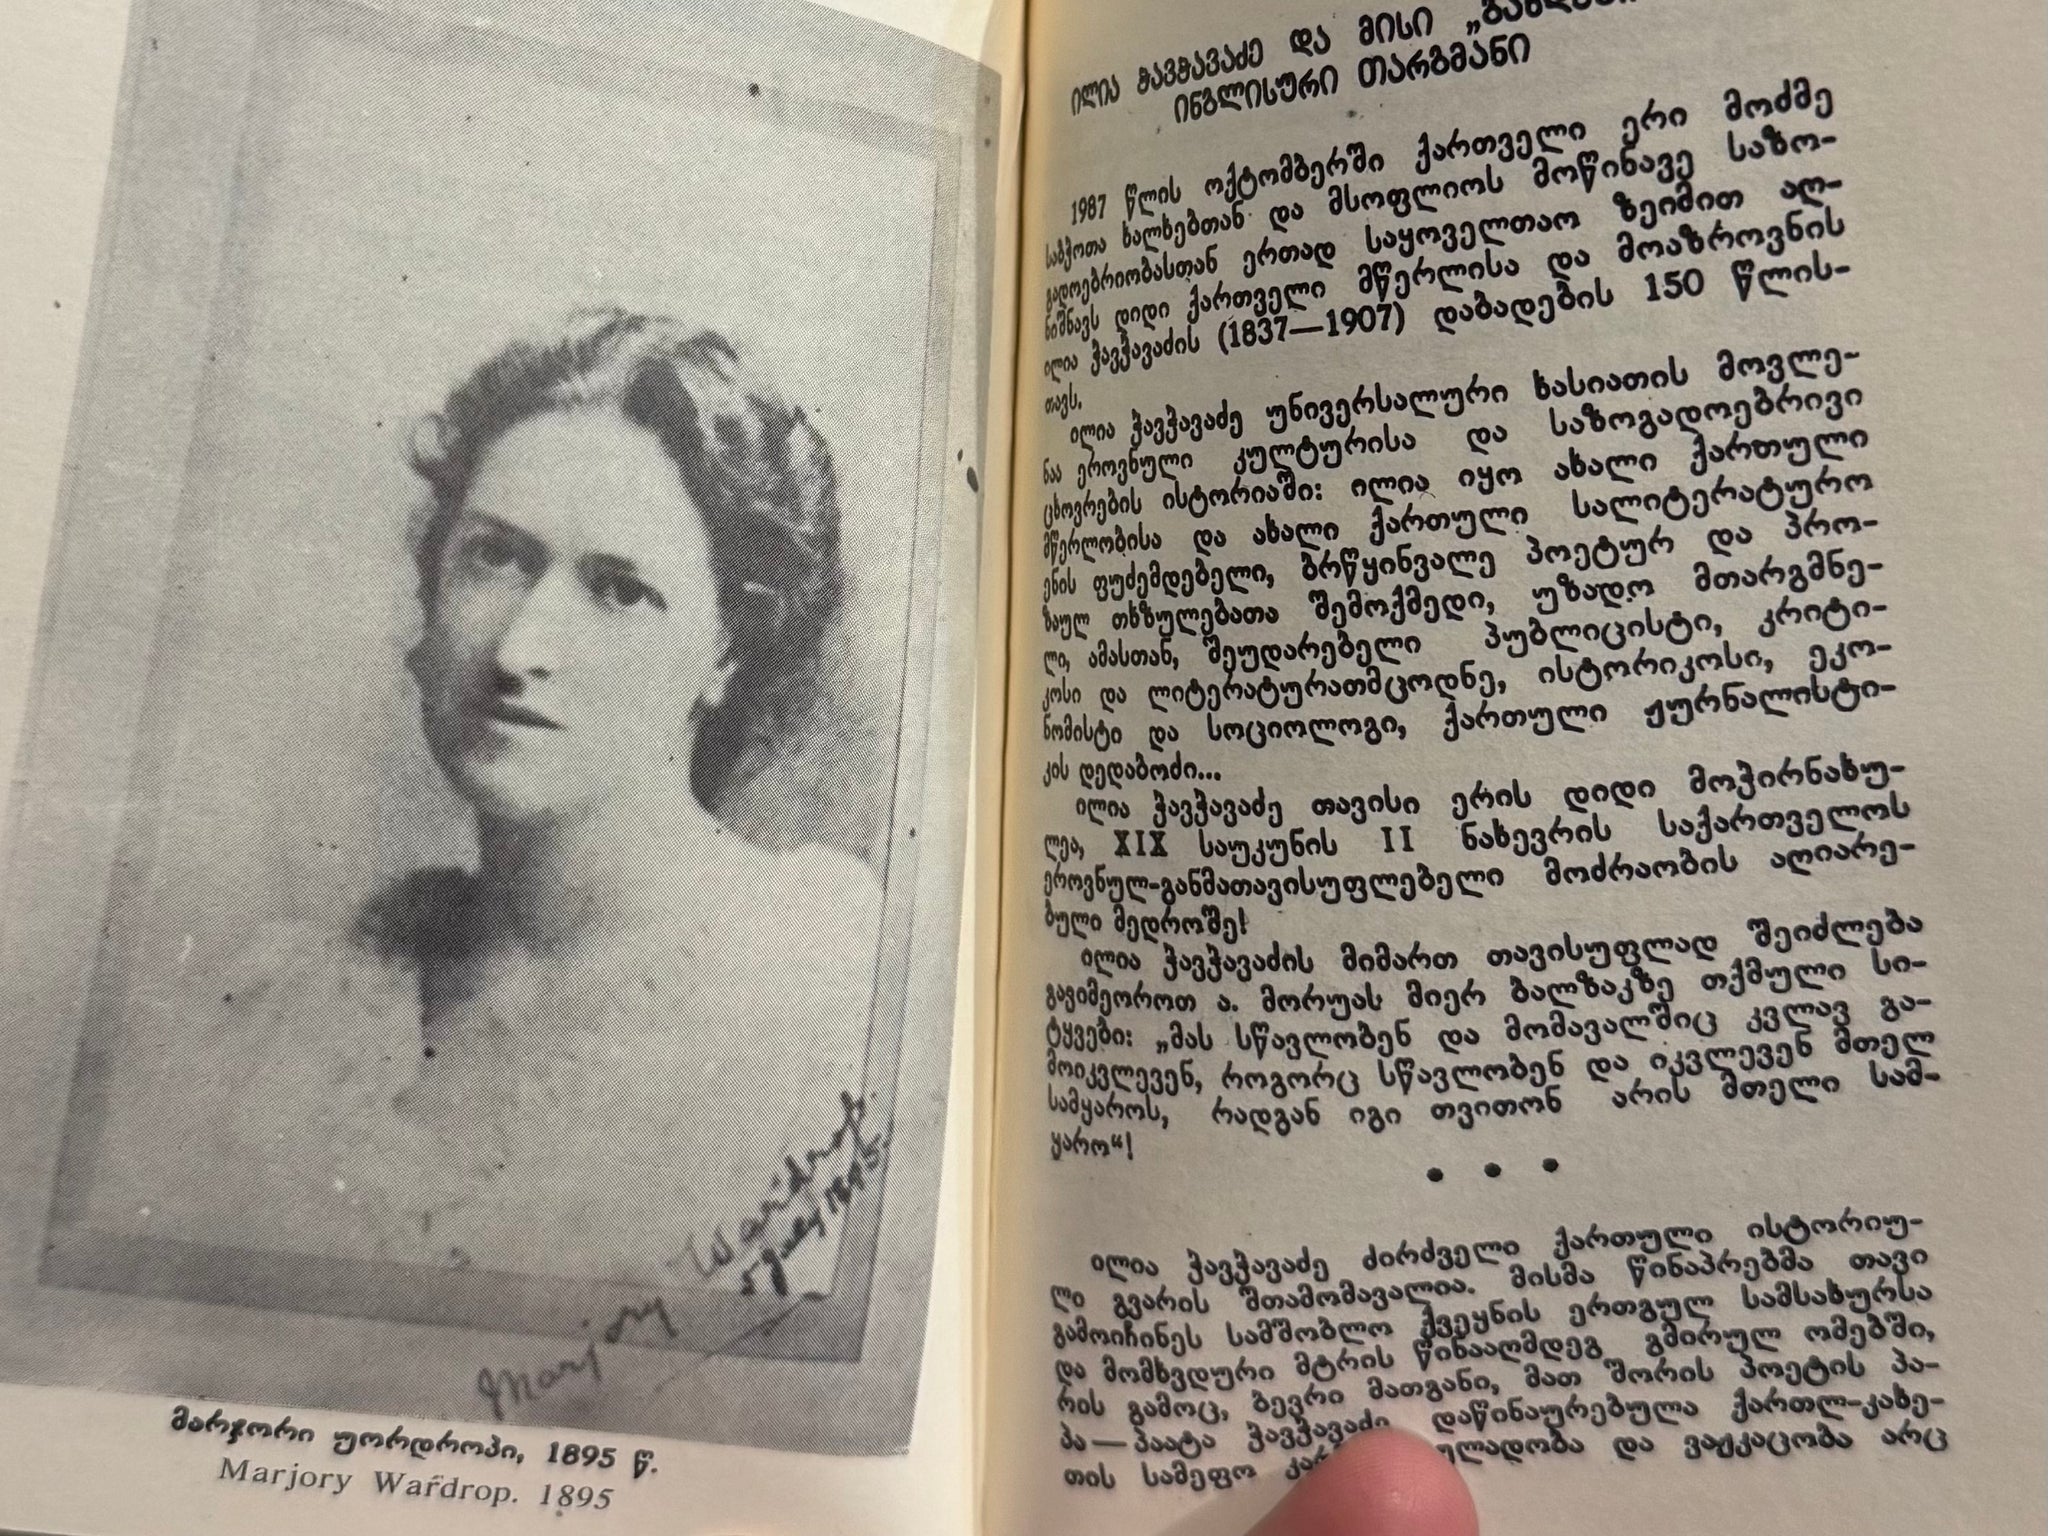 Marjory Wardrop
5 July 1895.
მარჯორი უორდროპი, 1895 წ.
Marjory Wardrop. 1895
ილია ჭავჭავაძე და მისი
ინგლისური თარგმანი
1987 წლის ოქტომბერში ქართველი ერი მოძმე
საბჭოთა ხალხებთან და მსოფლიოს მოწინავე საზო-
გადოებრიობასთან ერთად საყოველთაო ზეიმით აღ-
ნიშნავს დიდი ქართველი მწერლისა და მოაზროვნის
ილია ჭავჭავაძის (1837—1907) დაბადების 150 წლის-
თავს.
ილია ჭავჭავაძე უნივერსალური ხასიათის მოვლე-
ნაა ეროვნული კულტურისა და საზოგადოებრივი
ცხოვრების ისტორიაში: ილია იყო ახალი ქართული
მწერლობისა და ახალი ქართული სალიტერატურო
ენის ფუძემდებელი, ბრწყინვალე პოეტურ და პრო-
ზაულ თხზულებათა შემოქმედი, უზადო მთარგმნე-
ლი, ამასთან, შეუდარებელი პუბლიცისტი, კრიტი-
კოსი და ლიტერატურათმცოდნე, ისტორიკოსი, ეკო-
ნომისტი და სოციოლოგი, ქართული ჟურნალისტი-
კის დედაბოძი...
ილია ჭავჭავაძე თავისი ერის დიდი მოჭირნახუ-
ლეა, XIX საუკუნის II ნახევრის საქართველოს
ეროვნულ-განმათავისუფლებელი მოძრაობის აღიარე-
ბული მედროშე!
ილია ჭავჭავაძის მიმართ თავისუფლად შეიძლება
გავიმეოროთ ა. მორუას მიერ ბალზაკზე თქმული სი-
ტყვები: „მას სწავლობენ და მომავალშიც კვლავ გა-
მოიკვლევენ, როგორც სწავლობენ და იკვლევენ მთელ
სამყაროს, რადგან იგი თვითონ არის მთელი სამ-
ყარო“!
• • •
ილია ჭავჭავაძე ძირძველი ქართული ისტორიუ-
ლი გვარის შთამომავალია. მისმა წინაპრებმა თავი
გამოიჩინეს სამშობლო ქვეყნის ერთგულ სამსახურსა
და მომხვდური მტრის წინააღმდეგ გმირულ ომებში,
რის გამოც, ბევრი მათგანი, მათ შორის პოეტის პა-
პა — პაატა ჭავჭავაძე დაწინაურებულა ქართლ-კახე-
თის სამეფო და ვაჟკაცობა არც